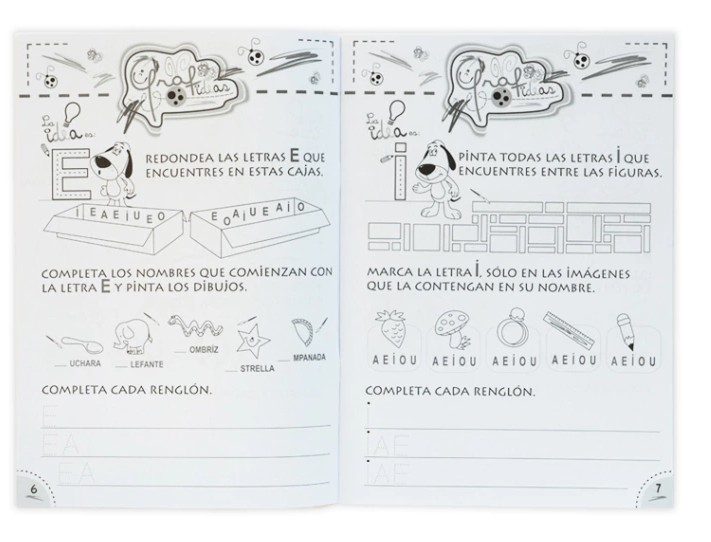 Grafidias
La
idea es:
E
REDONDEA LAS LETRAS E QUE
ENCUENTRES EN ESTAS CAJAS.
I E A E I U E O
E O A I U E A I O
COMPLETA LOS NOMBRES QUE COMIENZAN CON
LA LETRA E Y PINTA LOS DIBUJOS.
___ UCHARA
___ LEFANTE
___ OMBRÍZ
___ STRELLA
___ MPANADA
COMPLETA CADA RENGLÓN.
E
EA
EA
6
Grafidias
La
idea es:
i
PINTA TODAS LAS LETRAS i QUE
ENCUENTRES ENTRE LAS FIGURAS.
MARCA LA LETRA i, SÓLO EN LAS IMÁGENES
QUE LA CONTENGAN EN SU NOMBRE.
A E İ O U
A E İ O U
A E İ O U
A E İ O U
A E İ O U
COMPLETA CADA RENGLÓN.
i
iAE
iAE
7